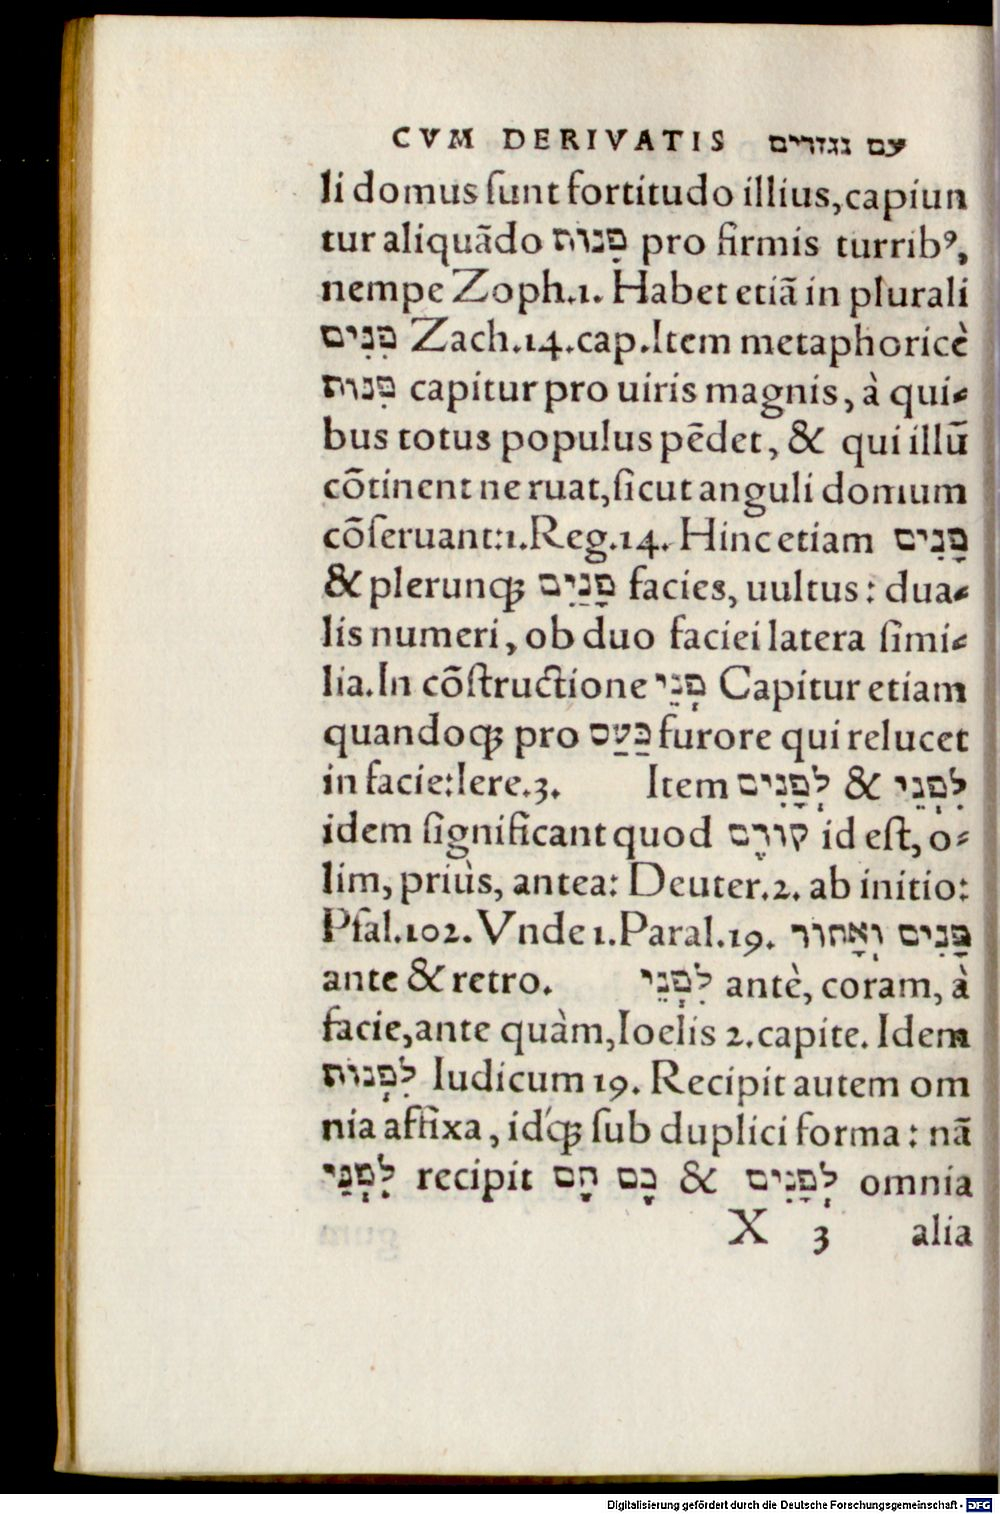 CVM DERIVATIS עם נגזרים
li domus ſunt fortitudo illius, capiun
tur aliquãdo פִנות pro firmis turribꝰ,
nempe Zoph.1. Habet etiã in plurali
פִנִים Zach.14.cap.Item metaphoricè
פִנות capitur pro uiris magnis, à qui⸗
bus totus populus pẽdet, & qui illũ
cõtinent ne ruat, ſicut anguli domum
cõſeruant:1.Reg.14. Hinc etiam פָנִים
& plerunq; פָנַיִם facies, uultus: dua⸗
lis numeri, ob duo faciei latera ſimi⸗
lia.In cõſtructione פְנֵי Capitur etiam
quandoq; pro כַעַס furore qui relucet
in facie:Iere.3. Item לְפָנִים & לִפְנֵי
idem ſignificant quod קודֶם id eſt, o⸗
lim, priùs, antea: Deuter.2. ab initio:
Pſal.102. Vnde 1.Paral.19. פָנִים וְאָחור
ante & retro. לִפְנֵי antè, coram, à
facie, ante quàm, Ioelis 2.capite. Idem
לִפְנות Iudicum 19. Recipit autem om
nia affixa, idq́; ſub duplici forma: nã
לִפְנֵי recipit כָם הָם & לְפָנִים omnia
X 3 alia